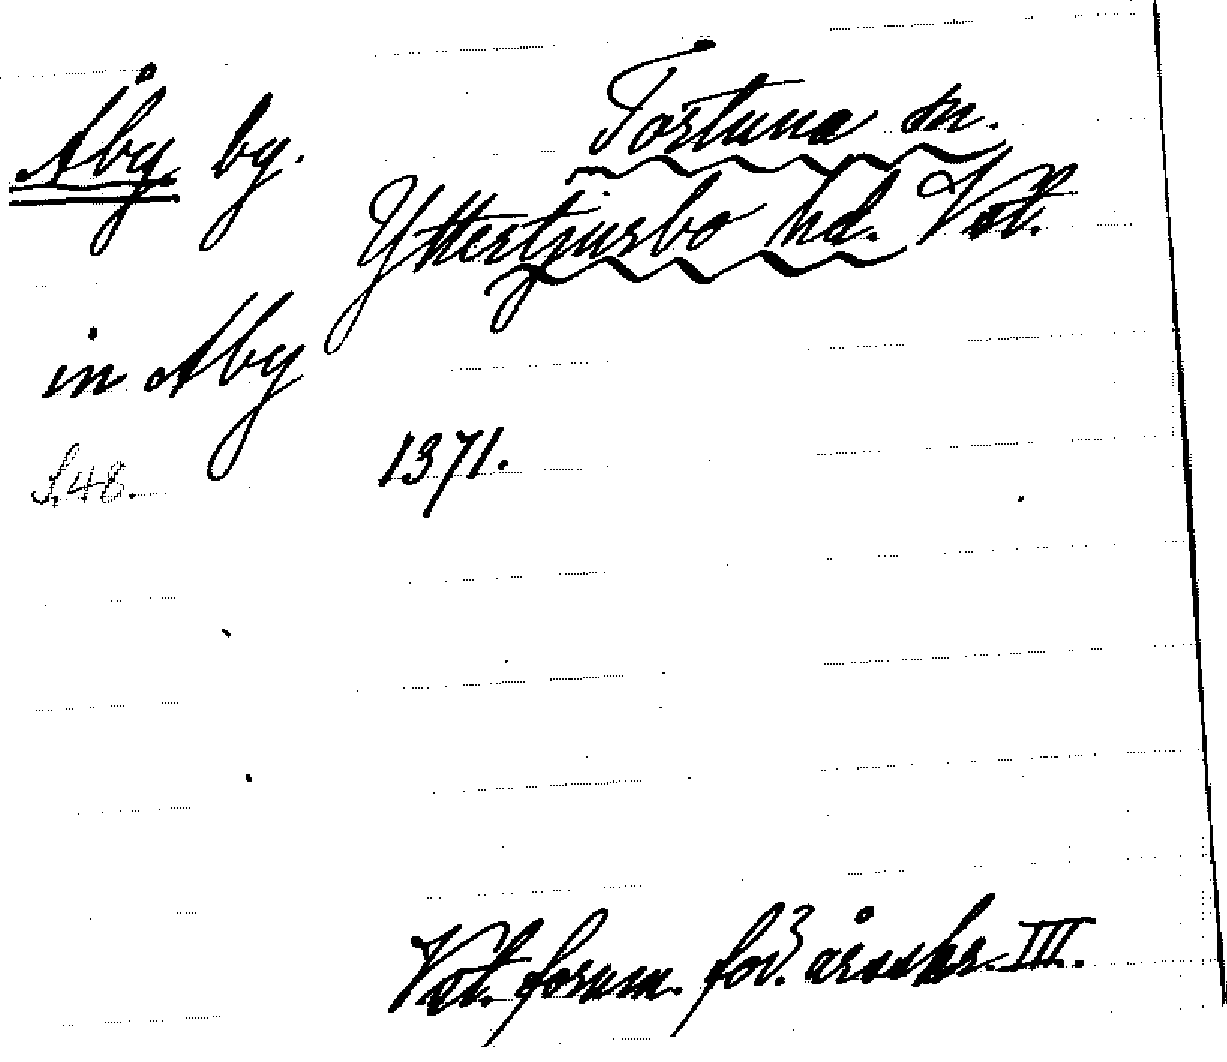 Åby by. Tortuna sn.
Yttertjurbo hd. Vstm.
in Aby
S. 48. 1371.
Vstm. fornm. för:s årsskr. III.